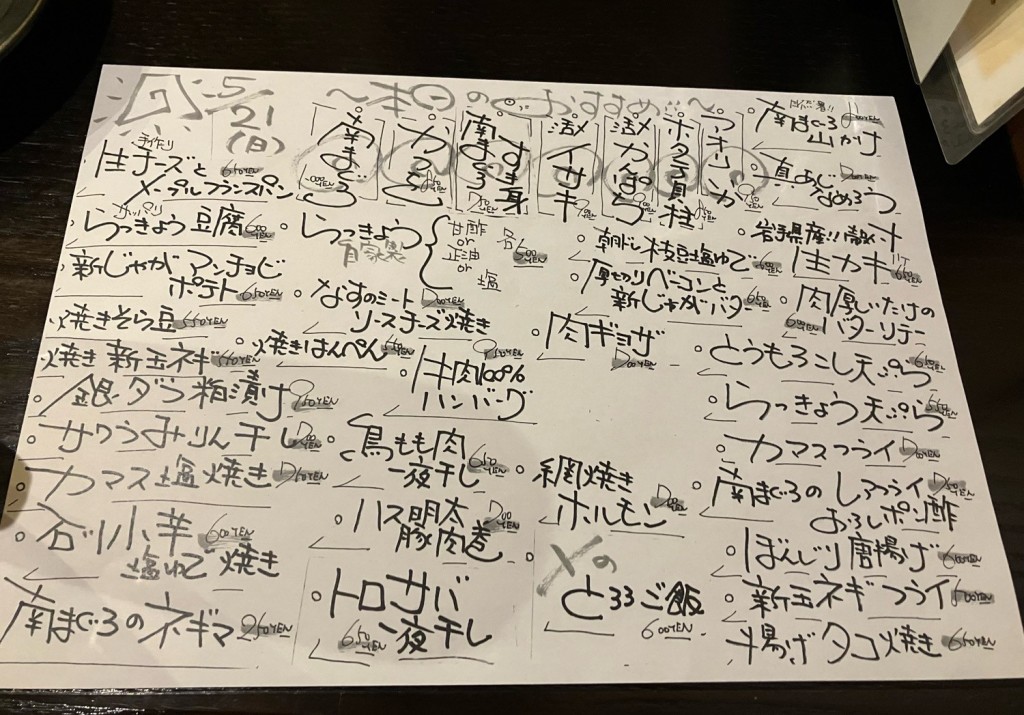 5/21(日)
～本日のおすすめ!!～
南まぐろ
かつを
南まぐろすき身
活イサキ
活かんぱち
ホタテ貝柱
アオリイカ
南まぐろ
山かけ
真あじ
なめろう
手作り
生チーズと 650YEN
メープルフランスパン
らっきょう豆腐 600YEN
らっきょう
自家製
甘酢
or
正油
or
塩
各500YEN
朝ドレ枝豆塩ゆで
岩手県産!!
生カキ
新じゃがアンチョビ
ポテト 650YEN
なすのミート
ソースチーズ焼き
厚切りベーコンと
新じゃがバター 650YEN
肉厚しいたけの
バターソテー
焼きそら豆 550YEN
焼きはんぺん
肉ギョウザ
とうもろこし天ぷら 650YEN
焼き新玉ネギ
牛肉100%
ハンバーグ
銀ダラ粕漬け
らっきょう天ぷら
サワラみりん干し
鳥もも肉 650YEN
一夜干し
カマスフライ
カマス塩焼き
網焼き
ホルモン
南まぐろのレアフライ
おろしポン酢
石川小芋 600YEN
塩ゆで 焼き
ハス明太
豚肉巻
ぼんじり唐揚げ 600YEN
〆の
とろろご飯
600YEN
新玉ネギフライ
南まぐろのネギマ
トロサバ
650YEN 一夜干し
揚げタコ焼き 650YEN